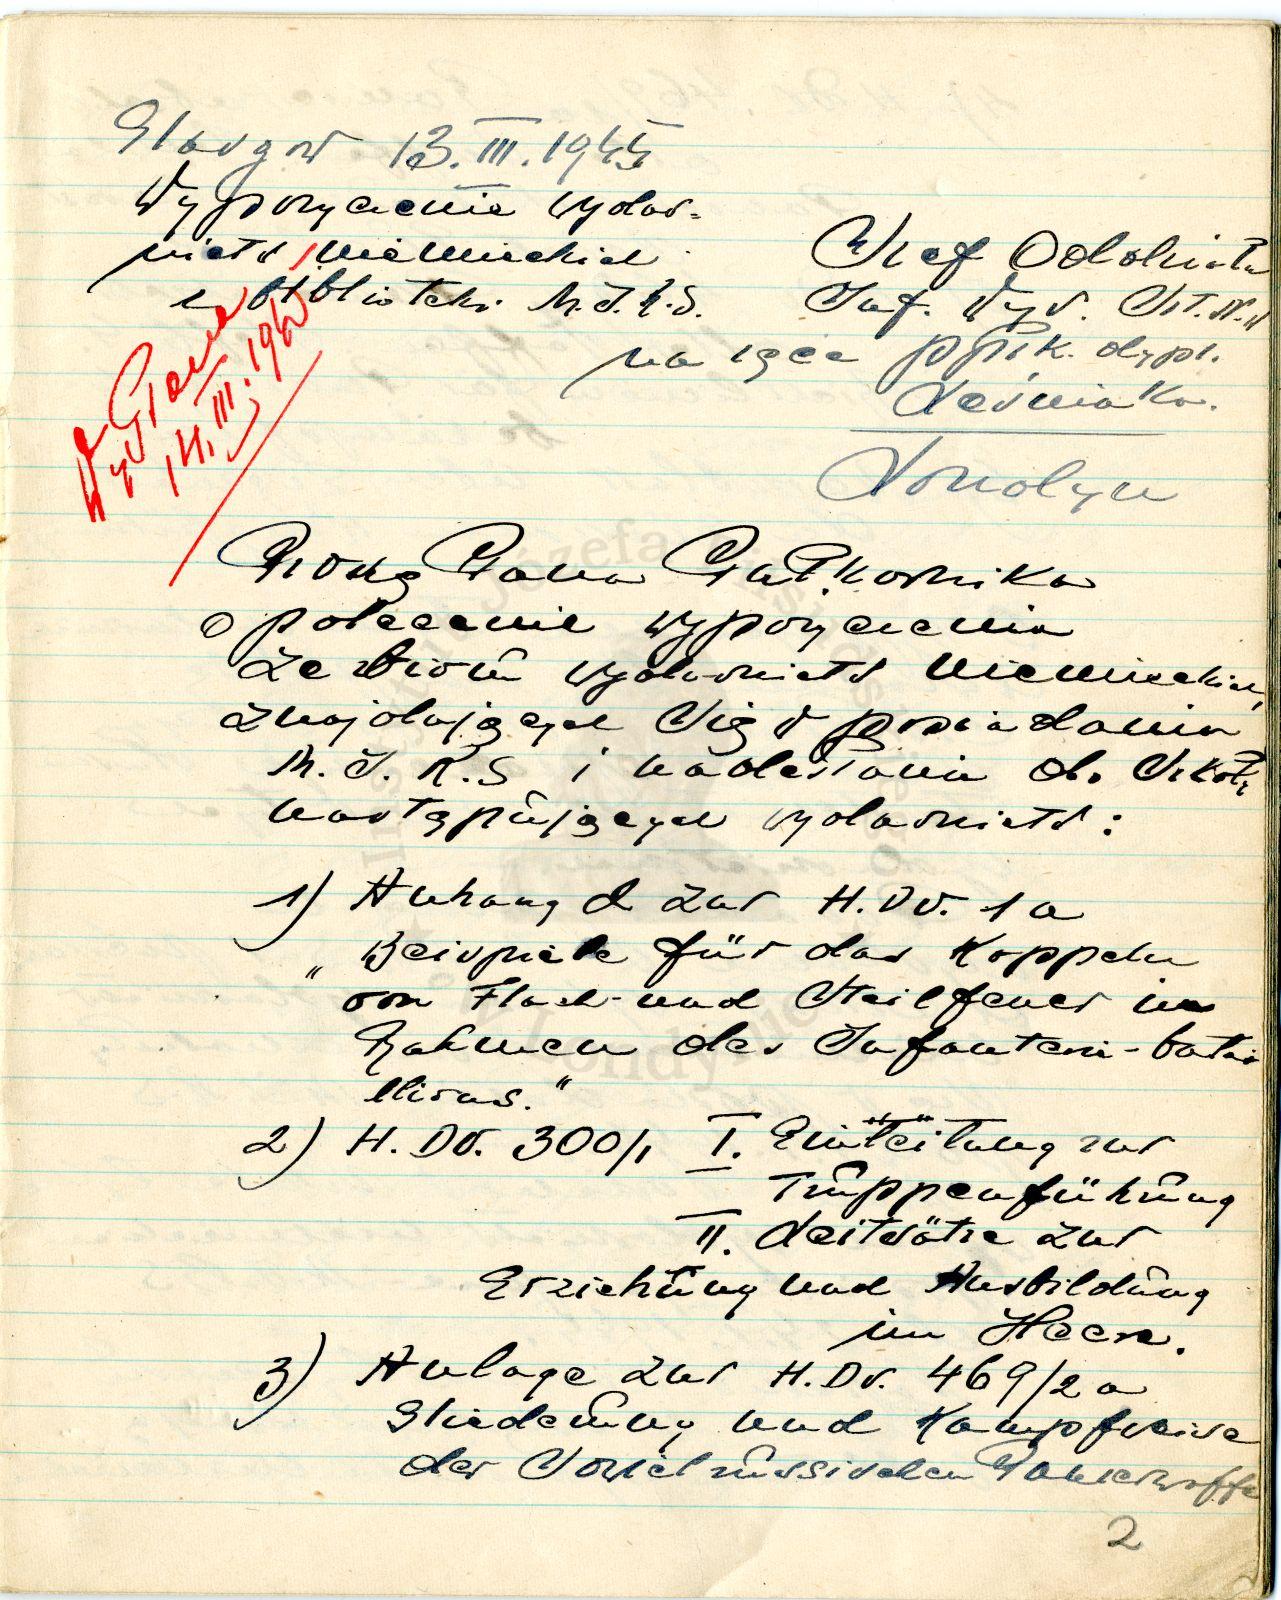 Glasgow 13.III.1945
Wypożyczenie wydaw-
nictw niemieckich
z biblioteki M.I.R.S.
Wysłane
14.III.1945
Szef Oddziału
Inf. Wyw. Szt. N. W
na ręce ppłk. dypl.
Leśniaka.
Londyn
Proszę Pana Pułkownika
o polecenie wypożyczenia
ze zbioru wydawnictw niemieckich,
znajdujących się w posiadaniu
M.I.R.S i nadesłanie do Szkoły
następujących wydawnictw:
1) Anhang 2 zur H.Dv. 1a
"Beispiele für das Koppeln
von Flach- und Steilfeuer im
Rahmen des Infanterie-batai
llions."
2) H.Dv. 300/1 I. Einleitung zur
Truppenführung
II. Leitsätze zur
Erziehung und Ausbildung
im Heere.
3) Anlage zur H.Dv. 469/2a
Gliederung und Kampfweise
der Sowjetrussischen Panzerwaffe
2